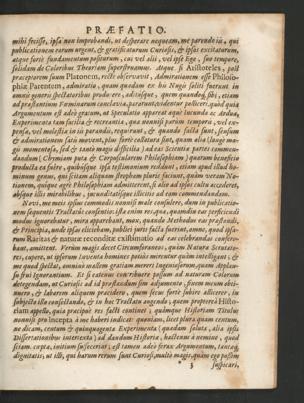 PRÆFATIO.
mihi fecisse, ipsa non improbandi, ut desperare nequeam, me parendo iis, qui
publicationem eorum urgent, & gratificaturum Curiosis, & ipsas excitaturum,
atque forte fundamentum positurum, cui vel alii, vel ipse Ego, suo tempore,
solidam de Coloribus Theoriam superstruamus. Atque si Aristoteles, post
præceptorem suum Platonem, recte observavit, Admirationem esse Philoso-
phiæ Parentem, admiratio, quam quædam ex his Nugis soliti fuerunt in
omni genere spectatoribus producere, adusque, quem quandoq; sibi, etiam
ad præstantium Fœminarum conclavia, pararunt, videntur polliceri, quod quia
Argumentum est adeo gratum, ut speculatio appareat æque jucunda ac Ardua,
Experimenta tam facilia & recreativa, quæ nonnisi parum temporis, vel ex-
pensa, vel molestia in iis parandis, requirunt, & quando facta sunt, sensum
& admirationem satis movent, plus forte collatura sint, quam alia (longe ma-
gis momentosa, sed & tanto magis difficilia) ad eas Scientiæ partes commen-
dandum (Chymiam puta & Corpuscularem Philosophiam) quarum beneficio
producta ea fuere, quibusque ipsa testimonium reddunt, etiam apud illud ho-
minum genus, qui scitam aliquam stropham pluris faciunt, quam veram No-
tionem, quique ægre Philosophiam admitterent, si aliæ ad ipsas cultu accederet,
absque illis mirabilibus, jucunditatisque illicitis ad eam commendandam.
Novi, me meis ipsius commodis nonnisi male consulere, dum in publicatio-
nem sequentis Tractatus consentio: ista enim res, quæ, quamdiu tue perficiendi
modus ignorabatur, mera apparebant, nunc, quando Methodus eas præstandi,
& Principia, unde ipsas eliciebam, publici juris facta fuerint, omne, quod ipsa-
rum Raritas & naturæ reconditæ exhibimatio ad eas celebrandas confere-
bant, amittent. Verum magis decet Circumforaneos, quam Naturæ Scrutato-
res, cupere, ut ipsorum Inventa homines potius mirentur quàm intelligant; &
me quod spectat, omnino mallem gratiam mereri Ingeniosorum, quàm Applau-
su frui Ignorantium. Et si catenus contribuere possum ad naturam Colorum
detegendam, ut Curiosis ad id præstandum sim adjumento, finem meum obti-
nuero, & laborem aliquem præcidero, quem secus forte subire allicerer, in
subjecto illo consectando, & in hoc Tractatu augendo, quem propterea Histo-
riam appello, quia præcipue res facti continet, quamque Historiam Titulo
nonnisi pro inceptâ a me haberi indicat: quoniam, licet plura quam centum,
ne dicam, centum & quinquaginta Experimenta (quædam soluta, alia ipsis
Dissertationibus intertexta) ad dandum Historiæ, hactenus à nemine, quod
sciam, cœpta, initium suffecerint; est tamen adeo ferax Argumentum, tantæq;
dignitatis, ut illi, qui harum rerum sunt Curiosi, multò magis, quàm ego possum
* 3
suspicari,